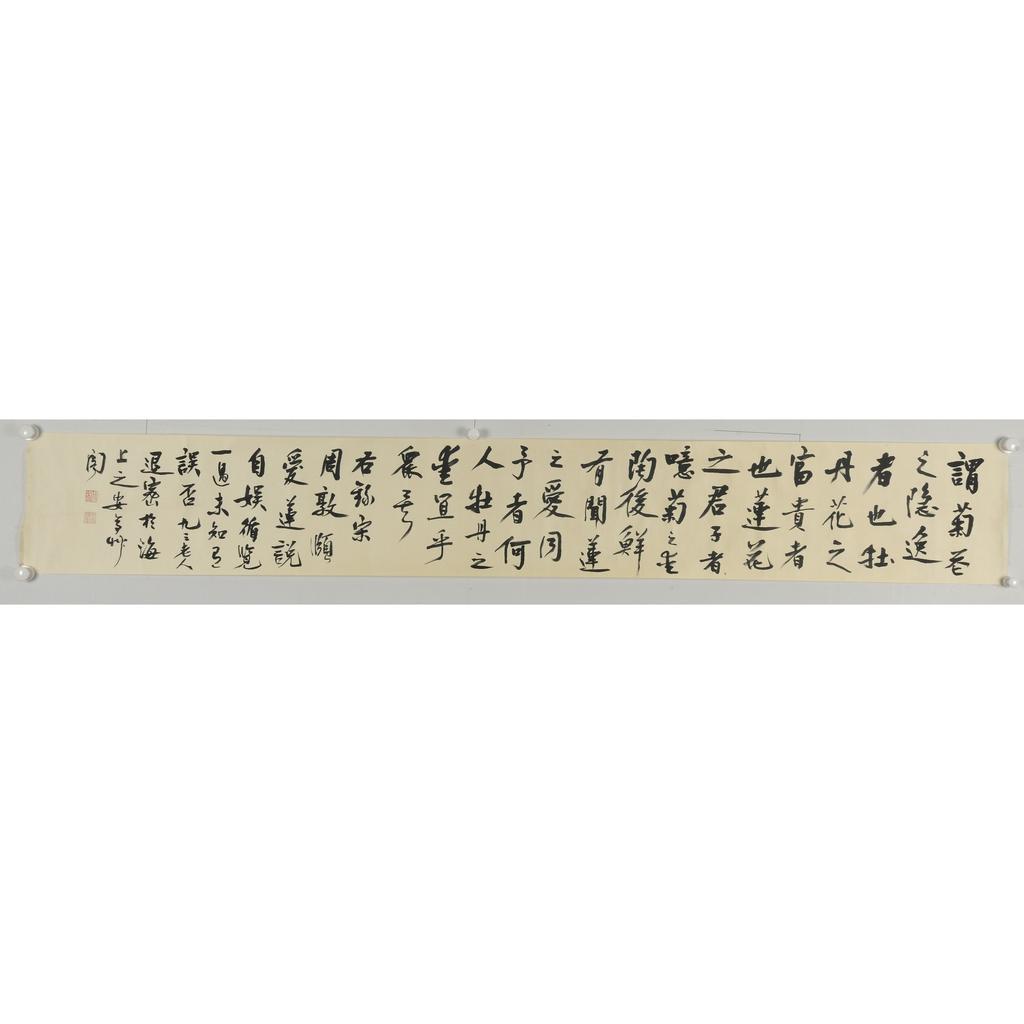 謂菊花
之隐逸
者也牡
丹花之
富貴者
也蓮花
之君子者
噫菊之愛
陶後鮮
有聞蓮
之愛同
予者何
人牡丹之
愛宜乎
眾矣
右錄宋
周敦頤
愛蓮說
自娛循覽
一過未知有
誤否九三老人
退密於海
上之安亭艸
閣